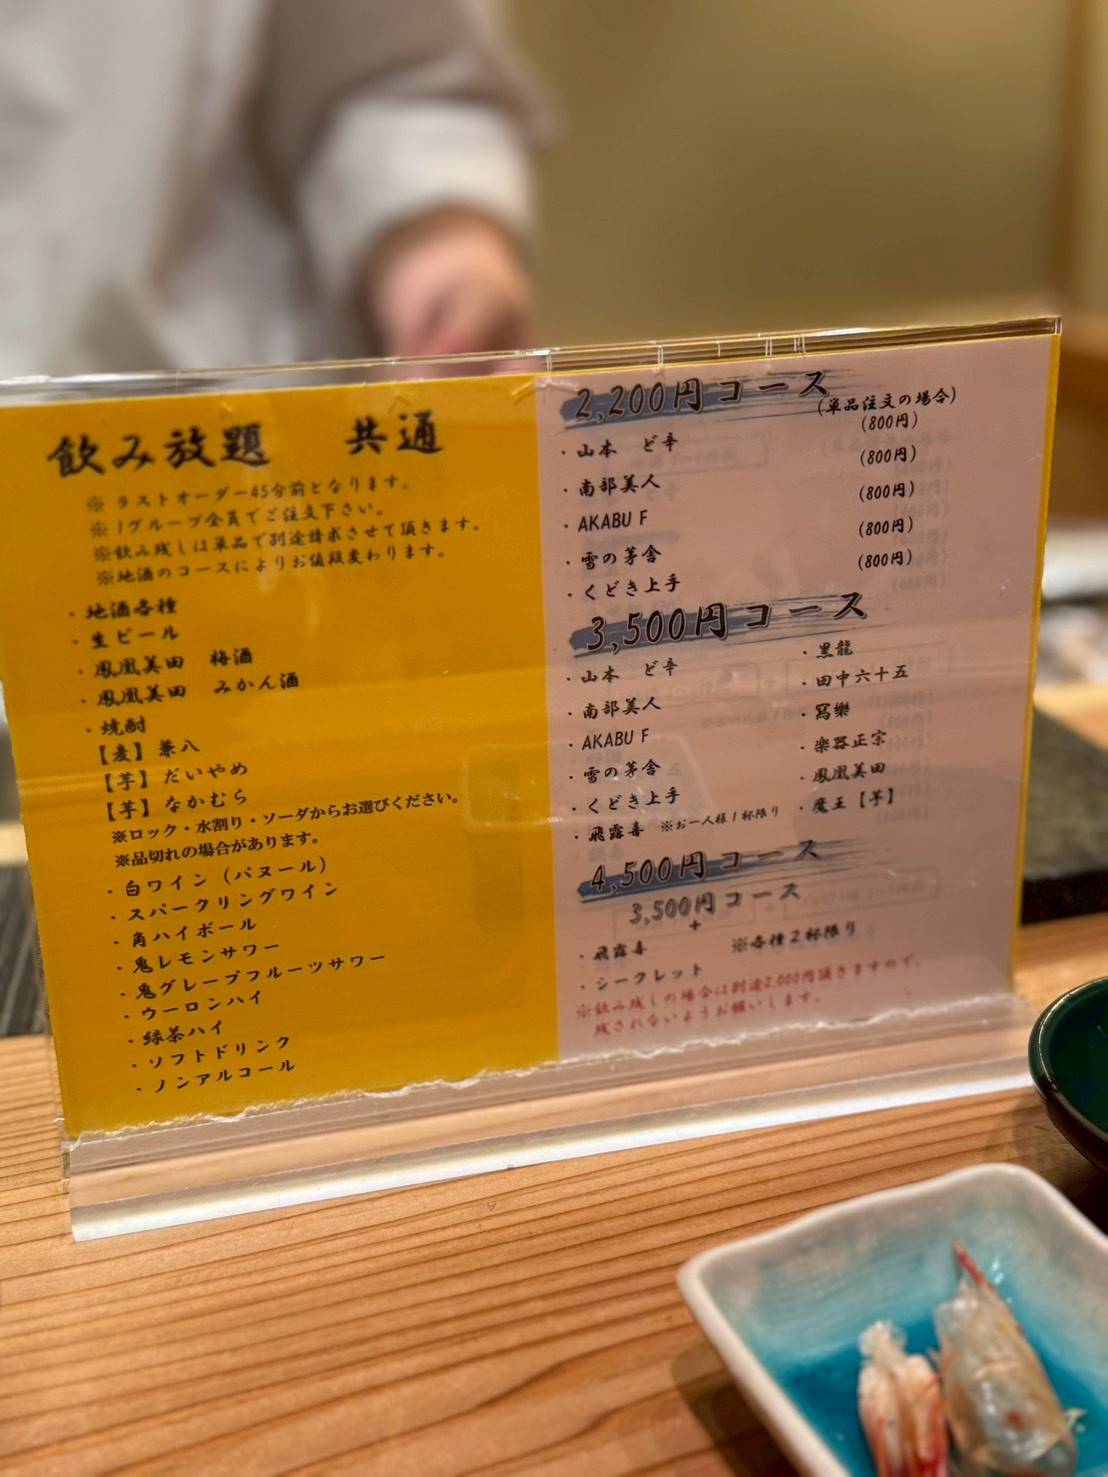 飲み放題　共通
※ ラストオーダー45分前となります。
※１グループ全員でご注文下さい。
※飲み残しは単品で別途請求させて頂きます。
※地酒のコースによりお値段変わります。
・地酒各種
・生ビール
・鳳凰美田　梅酒
・鳳凰美田　みかん酒
・焼酎
【麦】兼八
【芋】だいやめ
【芋】なかむら
※ロック・水割り・ソーダからお選びください。
※品切れの場合があります。
・白ワイン（パヌール）
・スパークリングワイン
・角ハイボール
・鬼レモンサワー
・鬼グレープフルーツサワー
・ウーロンハイ
・緑茶ハイ
・ソフトドリンク
・ノンアルコール
2,200円コース
(単品注文の場合)
・山本　ど辛　(800円)
・南部美人　(800円)
・AKABU F　(800円)
・雪の茅舎　(800円)
・くどき上手　(800円)
3,500円コース
・山本　ど辛
・南部美人
・AKABU F
・雪の茅舎
・くどき上手
・飛露喜　※お一人様１杯限り
・黒龍
・田中六十五
・冩樂
・楽器正宗
・鳳凰美田
・魔王【芋】
4,500円コース
3,500円コース
+
・飛露喜　※各種２杯限り
・シークレット
※飲み残しの場合は別途2,000円頂きますので、
残されないようお願いします。